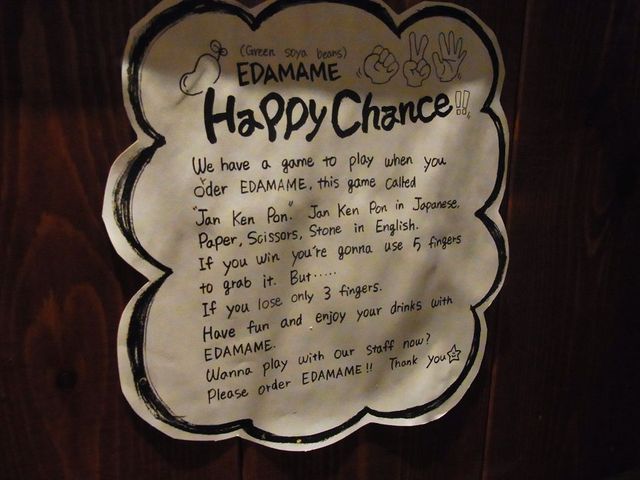 (Green soya beans)
EDAMAME
Happy Chance!!
We have a game to play when you
order EDAMAME, this game called
"Jan Ken Pon." Jan Ken Pon in Japanese.
Paper, Scissors, Stone in English.
If you win you're gonna use 5 fingers
to grab it. But.....
If you lose only 3 fingers.
Have fun and enjoy your drinks with
EDAMAME.
Wanna play with our staff now?
Please order EDAMAME!! Thank you☆